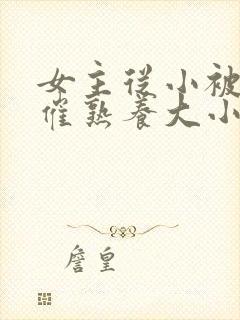 女主从小被
催熟养大小
詹皇